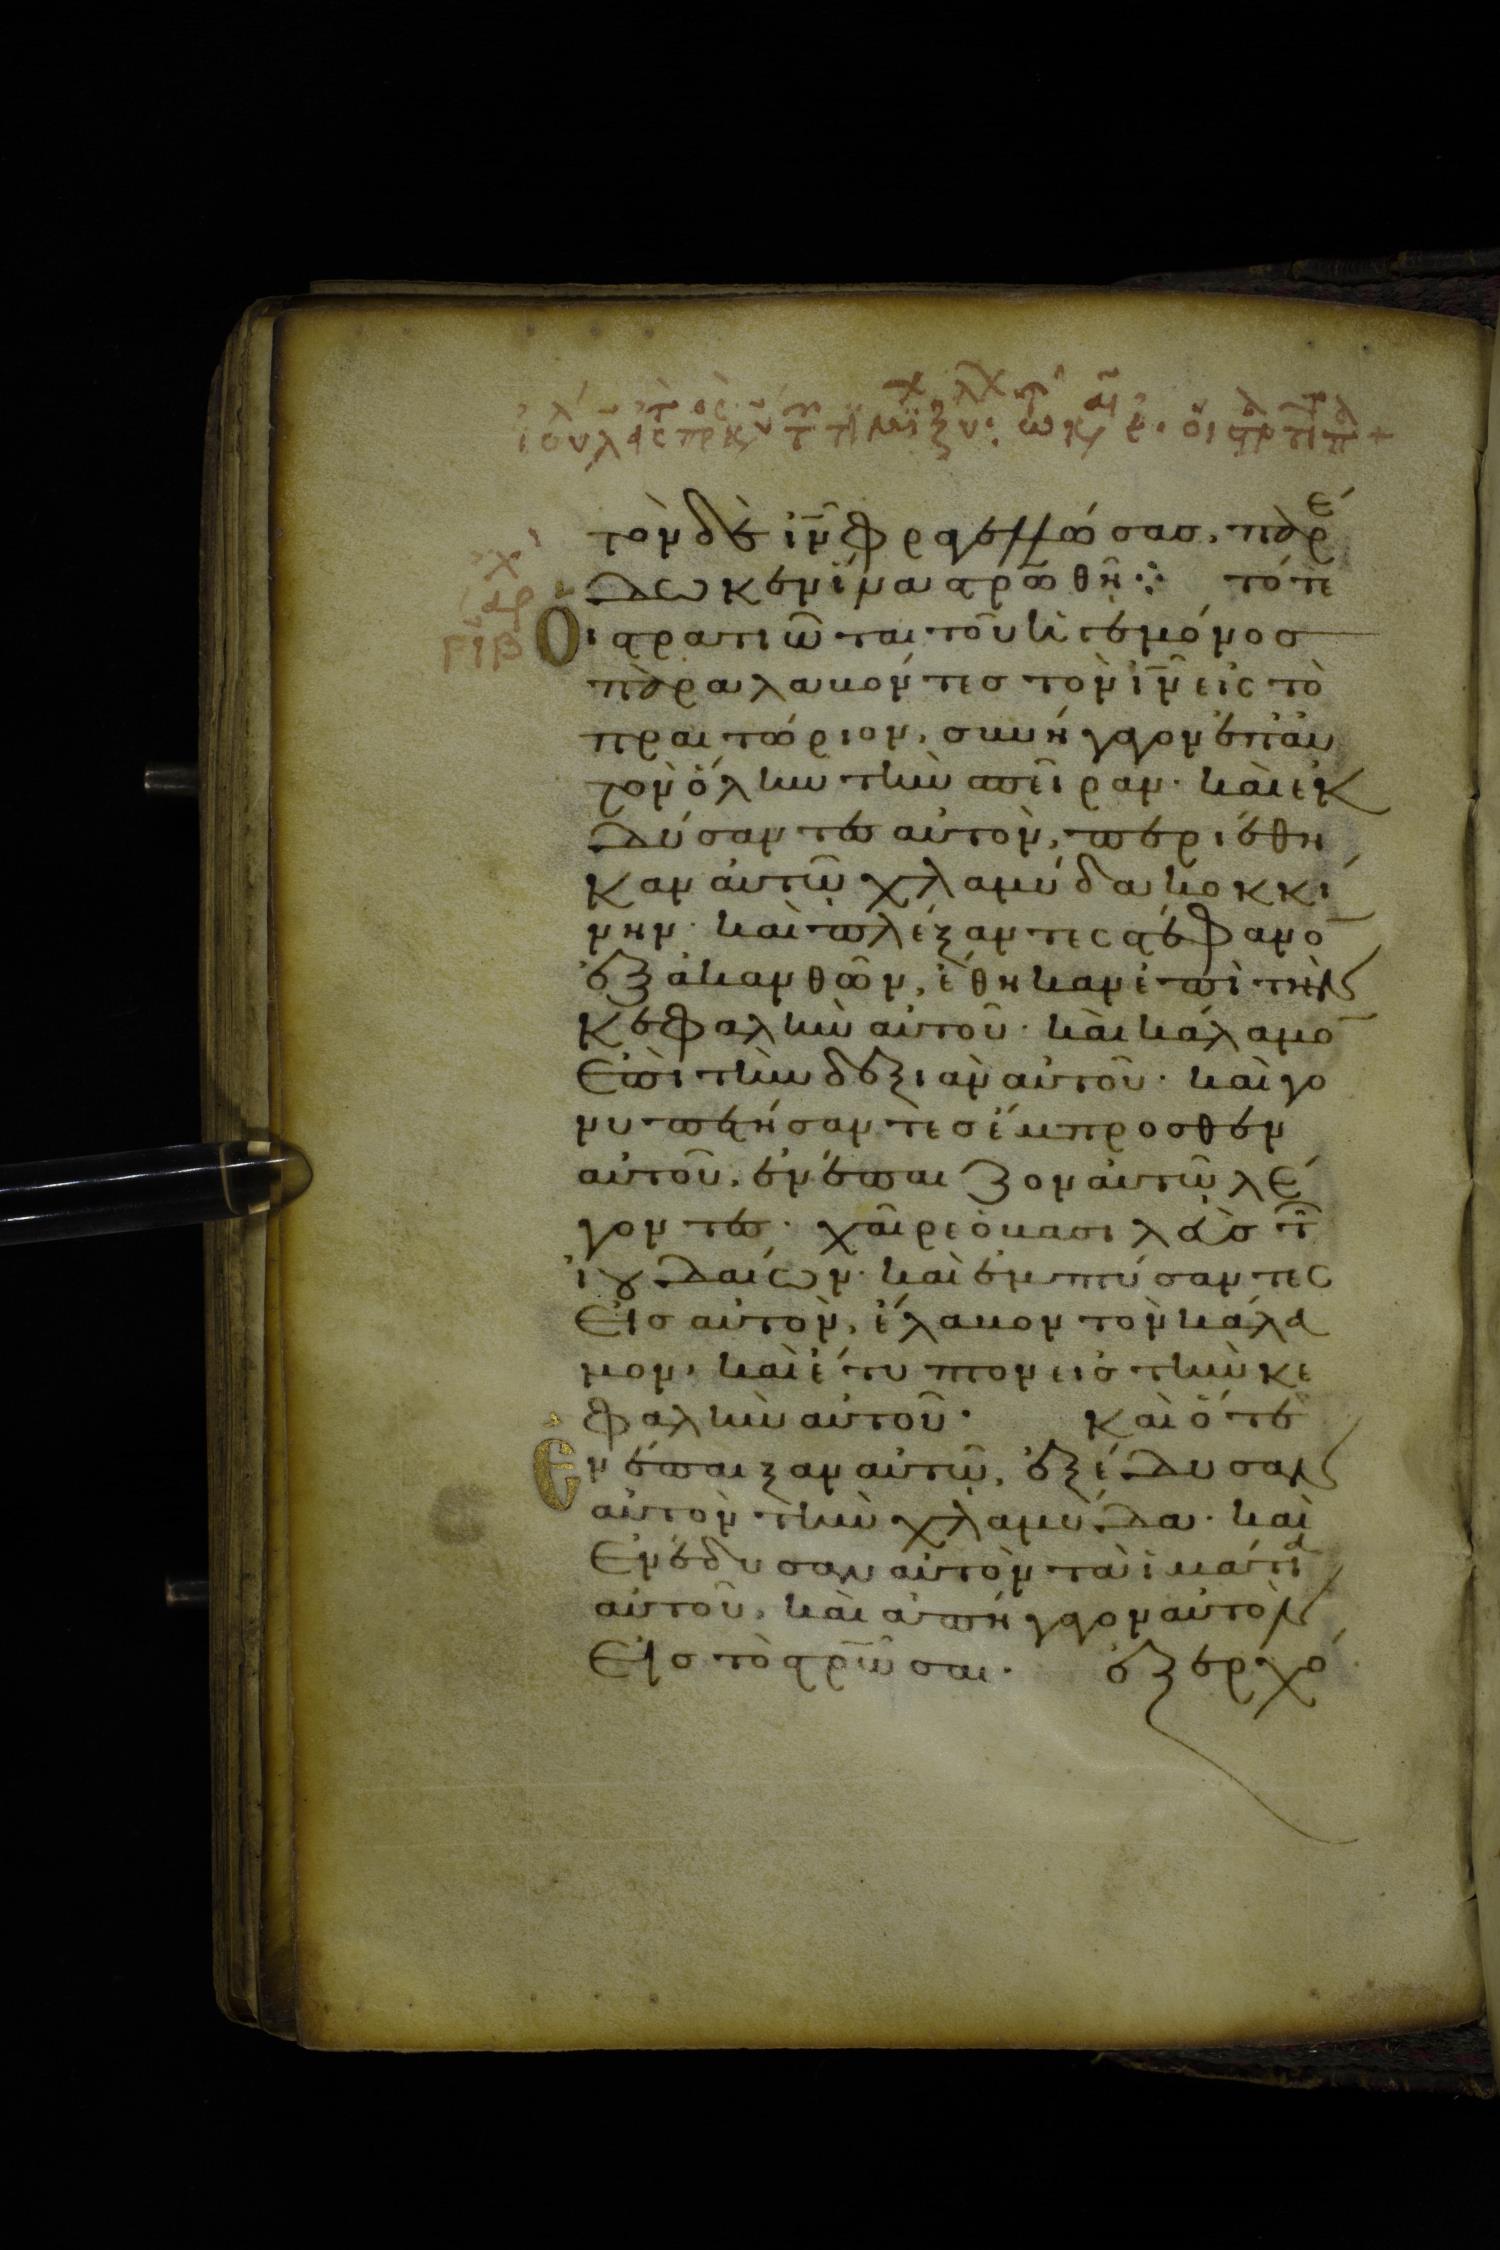 τὸν δὲ ἰ̅ν̅ φραγελλώσας, παρέ
δωκεν ἵνα στ̅ρωθῆ⁘ τότε
Οἱ στρατιῶται τοῦ ἡγεμόνος
παραλαβόντες τὸν ἰ̅ν̅ εἰς τὸ
πραιτώριον, συνήγαγον ἐπ' αὐ
τὸν ὅλην τὴν σπεῖραν· καὶ ἐκ
δύσαντες αὐτὸν, περιέθη
καν αὐτῶ χλαμύδα κοκκί
νην· καὶ πλέξαντες στέφανο̅
ἐξ ἀκανθῶν, ἔθηκαν ἐπὶ τὴν
κεφαλὴν αὐτοῦ· καὶ κάλαμο̅
ἐπὶ τὴν δεξιὰν αὐτοῦ· καὶ γο
νυπετήσαντες ἔμπροσθεν
αὐτοῦ, ἐνέπαιζον αὐτῶ λέ
γοντες· χαῖρε ὁ βασιλεὺς τῶν
ἰουδαίων· καὶ ἐμπτύσαντες
εἰς αὐτὸν, ἔλαβον τὸν κάλα
μον, καὶ ἔτυπτον εἰς τὴν κε
φαλὴν αὐτοῦ· καὶ ὅτε
Ἐνέπαιξαν αὐτῶ, ἐξέδυσαν
αὐτὸν τὴν χλαμύδα· καὶ
ἐνέδυσαν αὐτὸν τὰ ἱμάτια
αὐτοῦ, καὶ ἀπήγαγον αὐτὸν
εἰς τὸ στ̅ρῶσαι· ἐξερχό